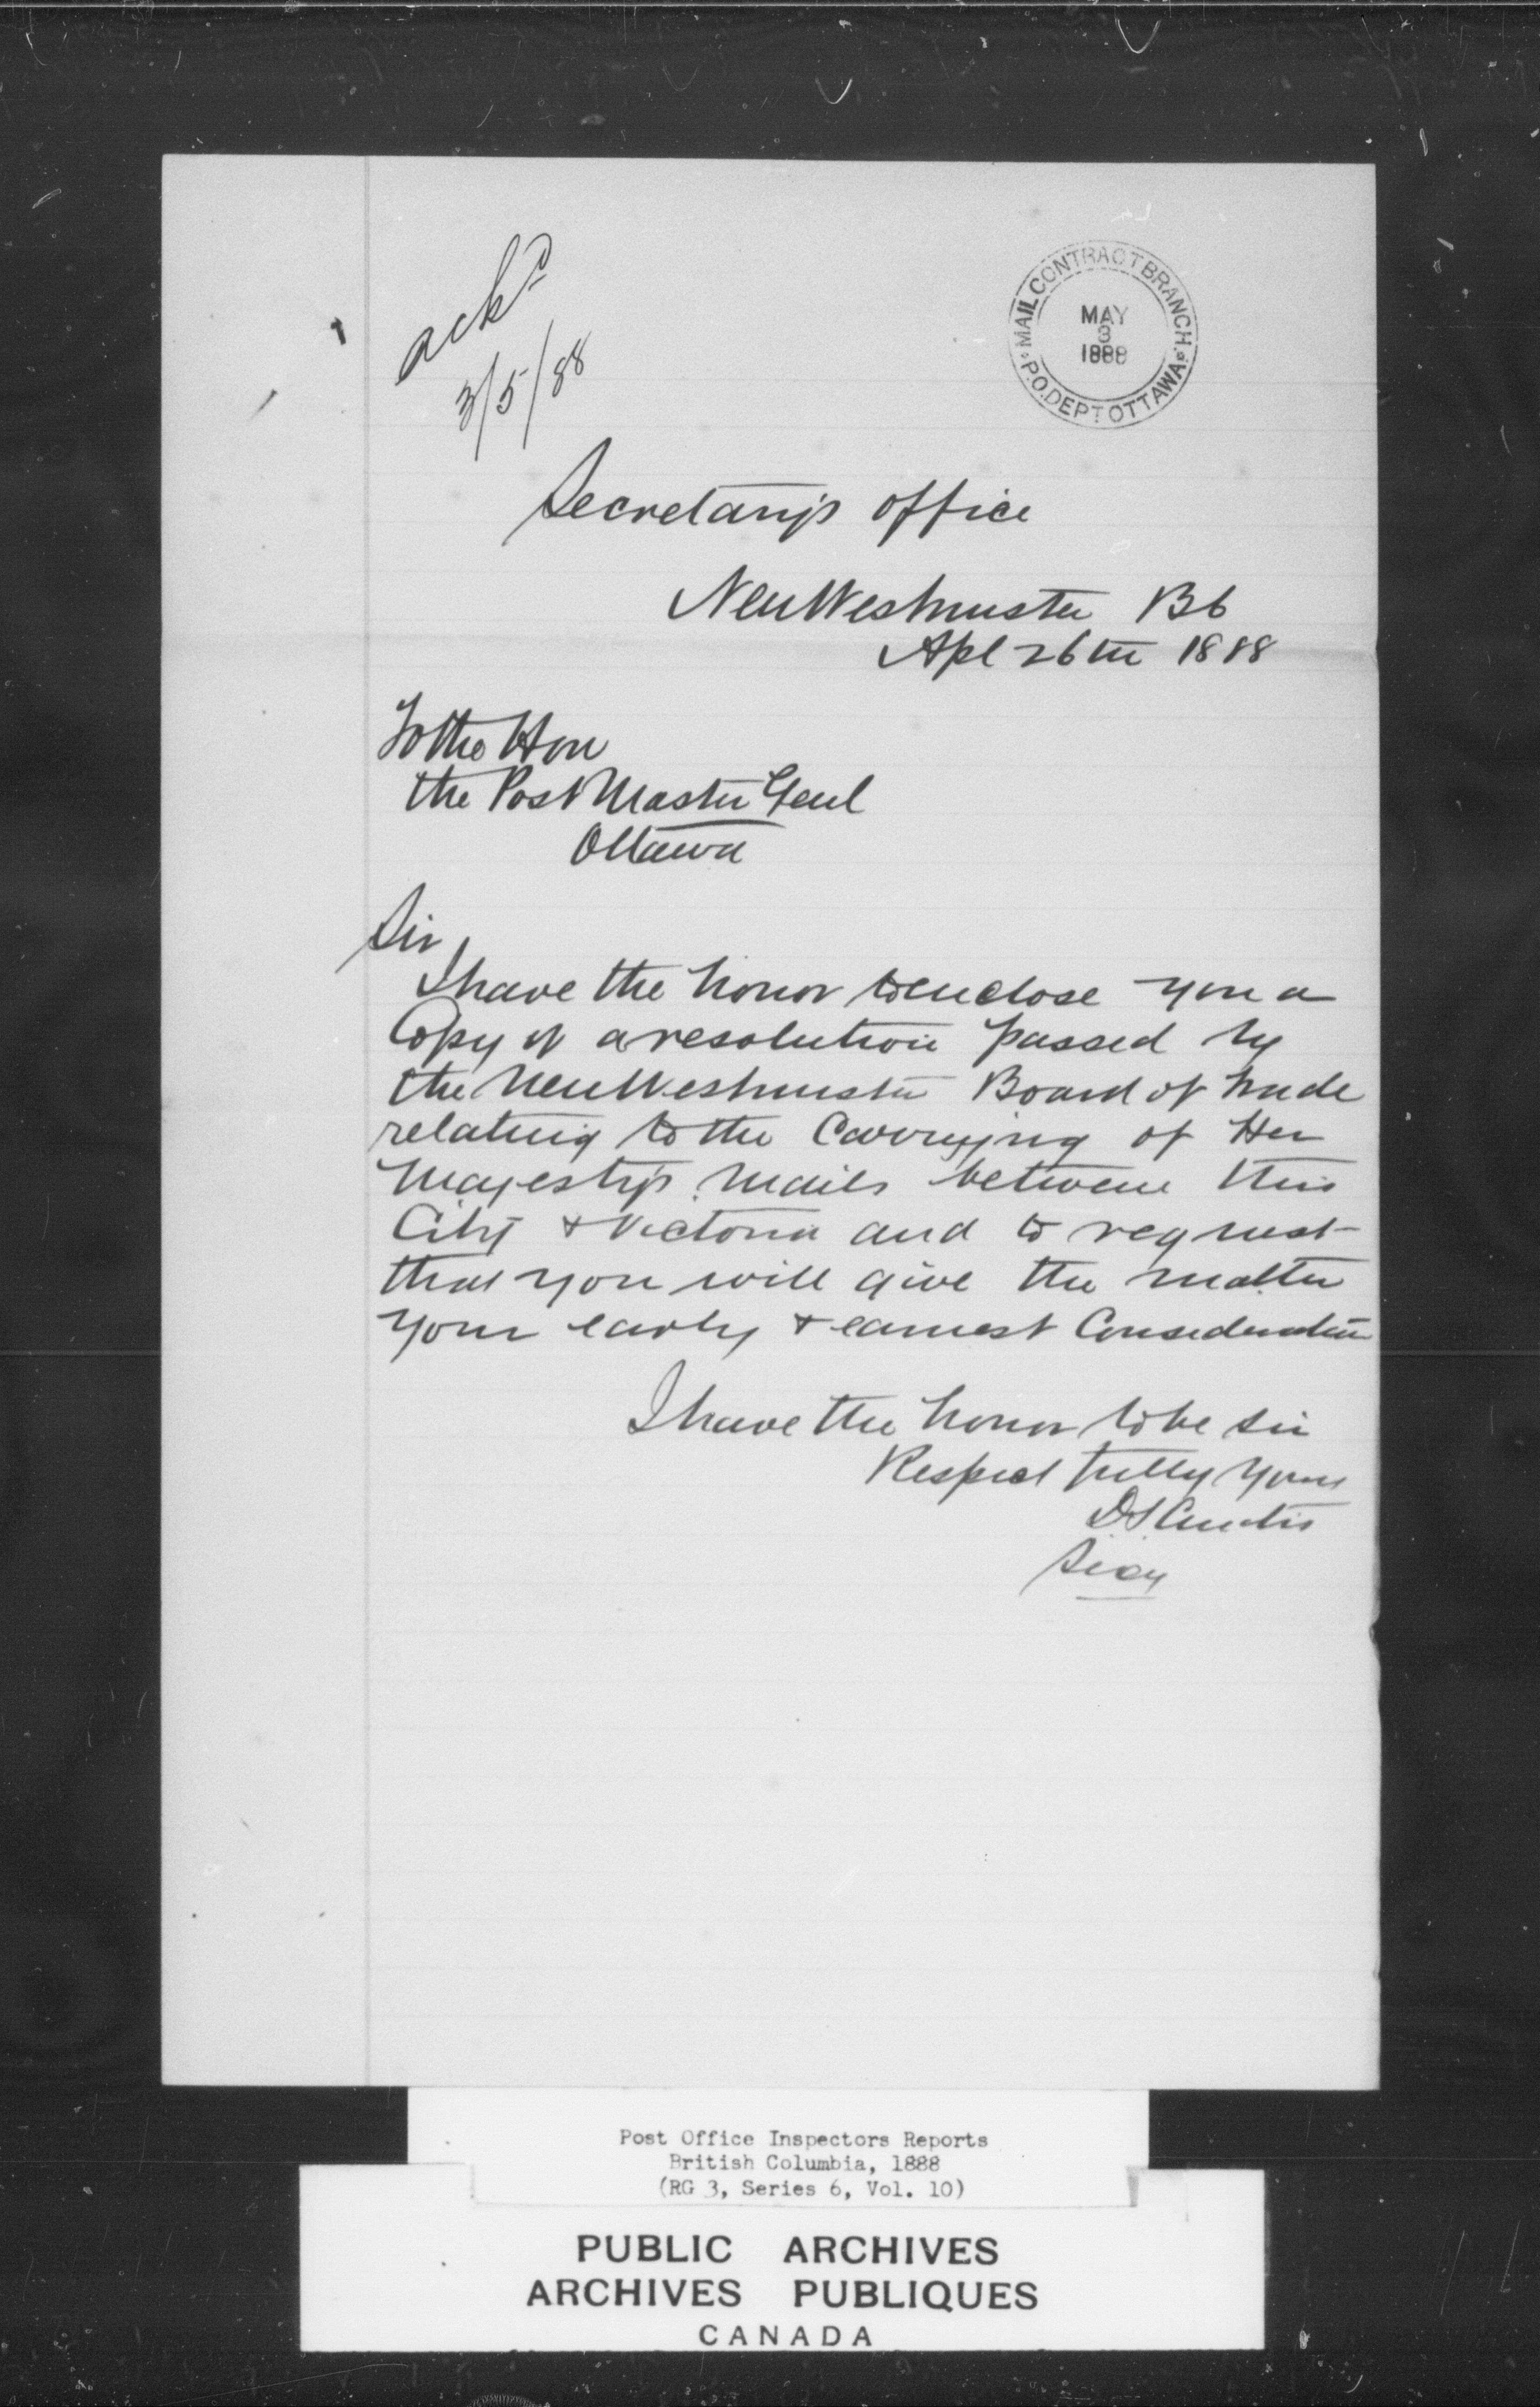 ackd
3/5/88
MAIL CONTRACT BRANCH.
MAY
3
1888
P.O. DEPT OTTAWA.
Secretary's office
New Westminster BC
Apl 26th 1888
To the Hon
the Post Master Genl
Ottawa
Sir,
I have the honor to enclose you a
Copy of a resolution passed by
the New Westminster Board of trade
relating to the Carrying of Her
Majesty's Mails between this
City & Victoria and to request
that you will give the matter
your early & earnest Consideration
I have the honor to be Sir
Respectfully Yours
D S Curtis
Secy
Post Office Inspectors Reports
British Columbia, 1888
(RG 3, Series 6, Vol. 10)
PUBLIC ARCHIVES
ARCHIVES PUBLIQUES
CANADA